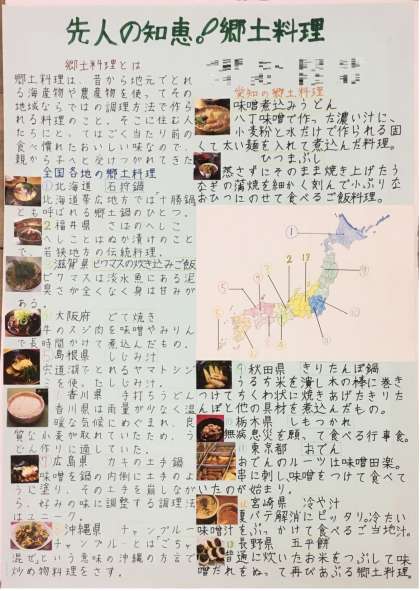 先人の知恵!郷土料理
郷土料理とは
郷土料理は、昔から地元でとれ
る海産物や農産物を使ってその
地域ならではの調理方法で作ら
れる料理のこと。そこに住む人
たちにとってはごく当たり前の
食べ慣れたおいしい味なので、
親から子へと受けつがれてきた
全国各地の郷土料理
①北海道 石狩鍋
北海道帯広地方では"十勝鍋"
とも呼ばれる郷土鍋のひとつ。
2福井県 さばのへしこ
へしことはぬか漬けのこと
で、若狭地方の伝統料理。
滋賀県ビワマスの炊き込みご飯
ビワマスは淡水魚にある泥
臭さが全くなく身は甘みが
ある。
大阪府 どて焼き
牛のスジ肉を味噌やみりん
で長時間かけて煮込んだもの。
島根県 しじみ汁
宍道湖でとれるヤマトシジ
ミを使ったしじみ汁。
香川県 手打ちうどん
香川県は雨量が少なく温
暖な気候にめぐまれ、良
質な小麦が取れていたため、う
どん作りに適していた。
広島県 カキの土手鍋
味噌を鍋の内側に土手のよ
うに塗り、その土手を崩しながら
、好みの味に調整する調理法
沖縄県 チャンプルー
チャンプルーとは"ごちゃ
混ぜ"という意味の沖縄の方言で
炒め物料理をさす。
愛知の郷土料理
味噌煮込みうどん
八丁味噌で作った濃い汁に、
小麦粉と水だけで作られる固
くて太い麺を入れて煮込んだ料理。
ひつまぶし
蒸さずにそのまま焼き上げたう
なぎの蒲焼を細かく刻んで小ぶりな
おひつにのせて食べるご飯料理。
秋田県 きりたんぽ鍋
うるち米を潰し木の棒に巻き
つけてちくわ状に焼きあげたきりた
んぽと他の具材を煮込んだもの。
栃木県 しもつかれ
無病息災を願って食べる行事食。
東京都 おでん
おでんのルーツは味噌田楽。
串に刺し味噌をつけて食べて
いたのが始まり。
宮崎県 冷や汁
夏バテ解消にピッタリ。冷たい
味噌汁をぶっかけて食べるご当地汁。
長野県 五平餅
普通に炊いたお米をつぶして味
噌だれをぬって再びあぶる郷土料理。